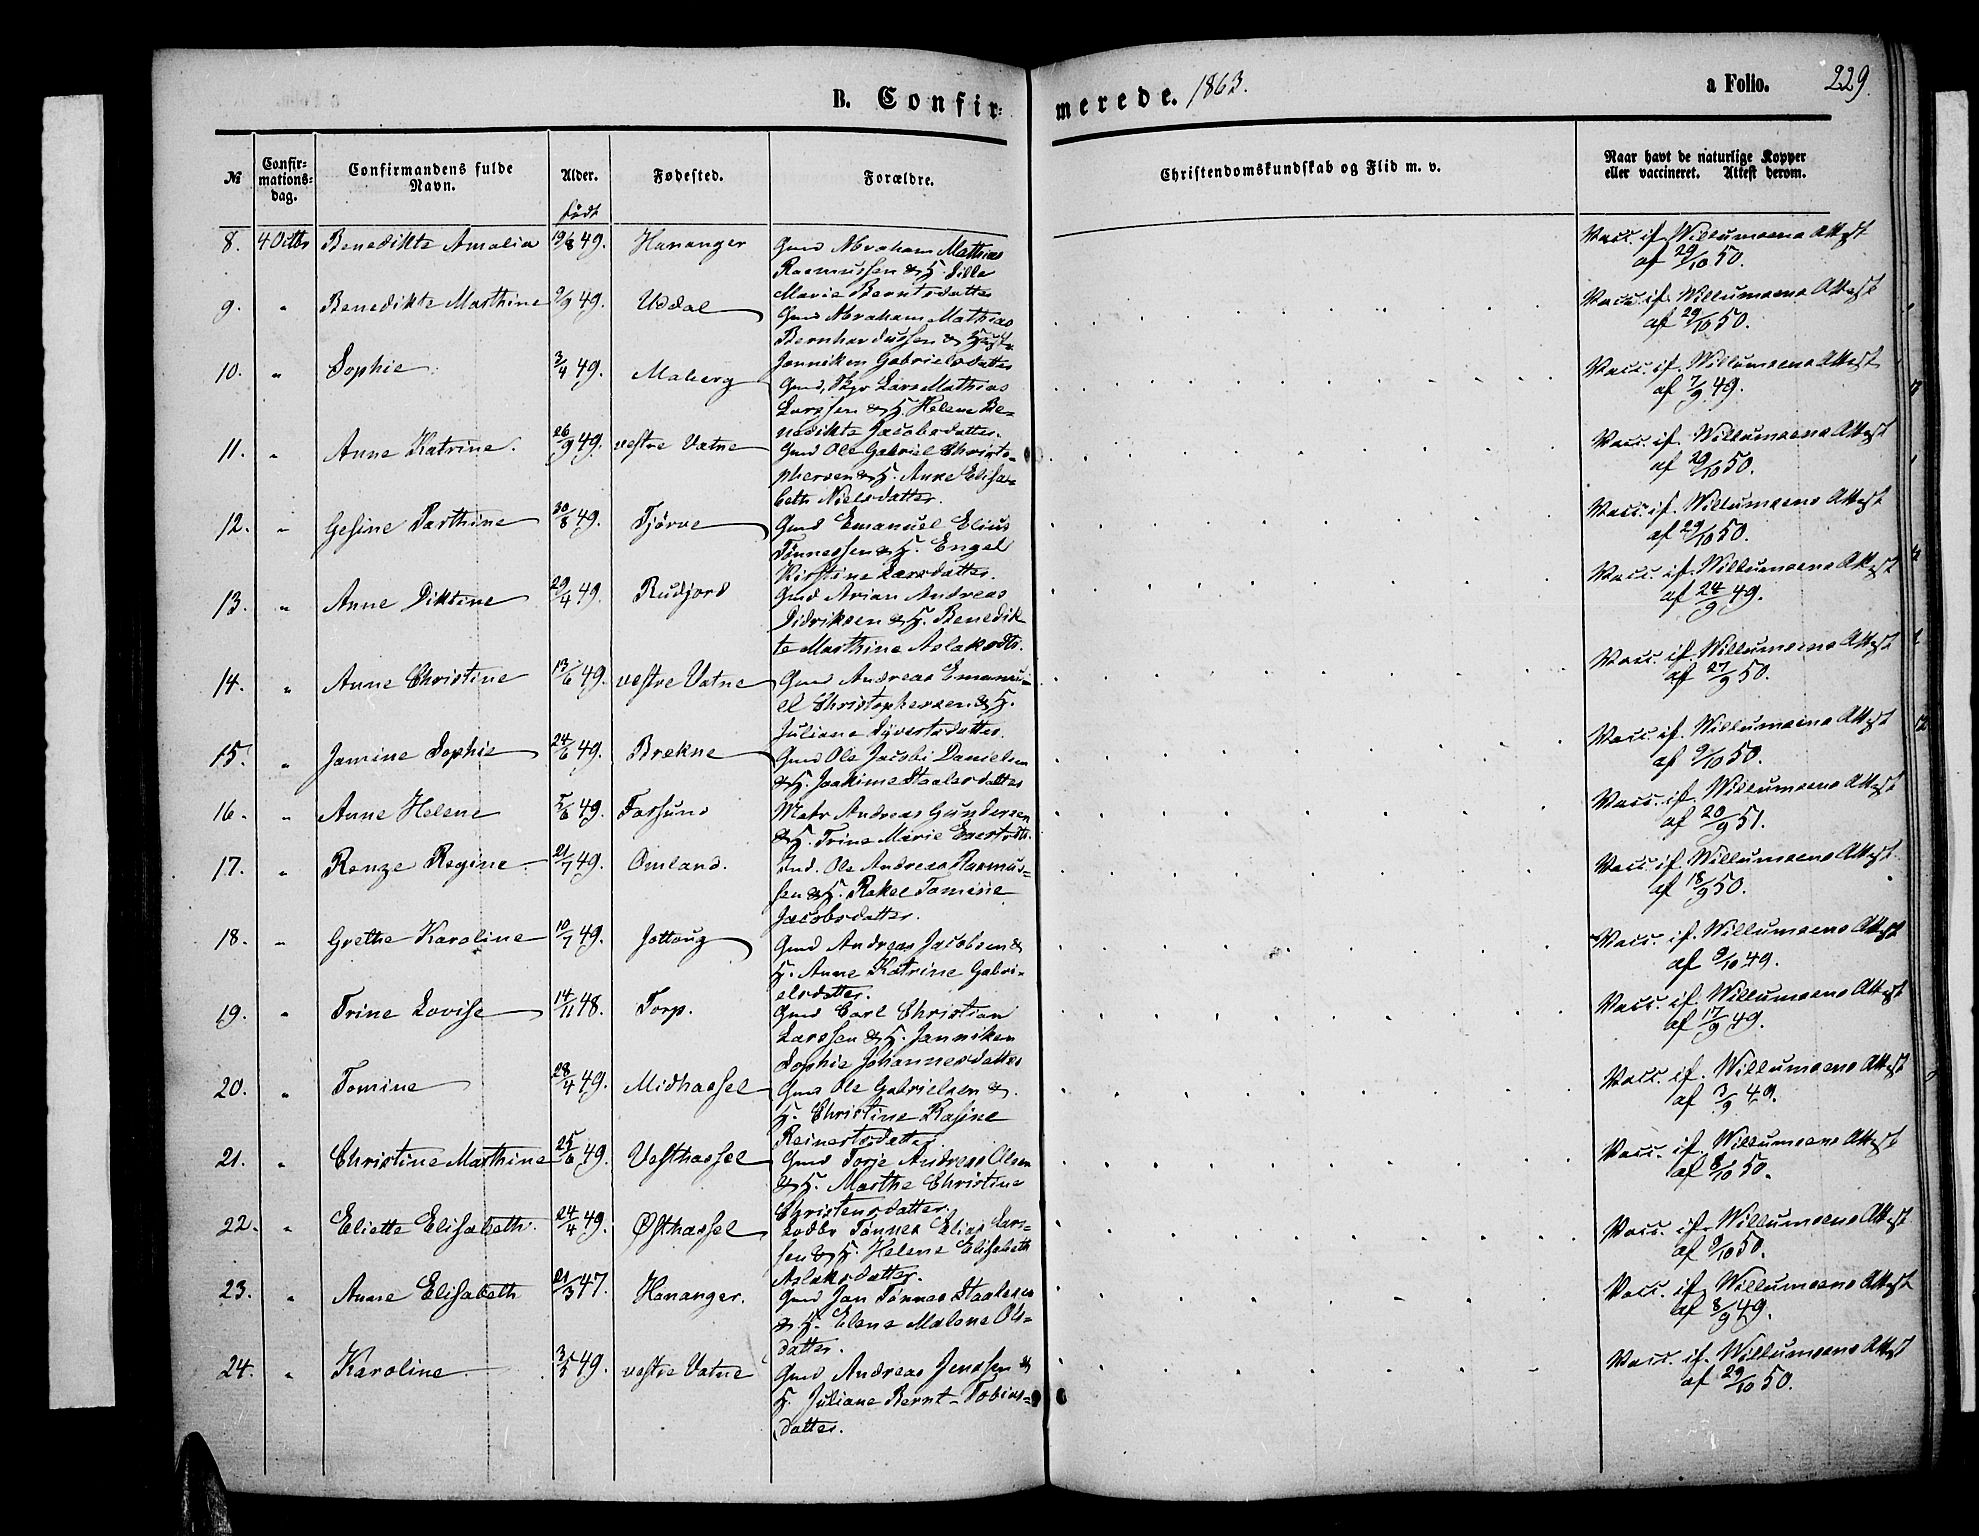 B. Confirmerede. 1863. a Folio. 229.
№ Confirmationsdag. Confirmandens fulde Navn. Alder. Fødested. Forældre. Christendomskundskab og Flid m. v. Naar havt de naturlige Kopper eller vaccineret. Attest derom.
født
8. 4 Octbr Benedikte Amalia 19/8 49. Hananger Gmd Abraham Mathias Vacc. if. Willumsens Attest
Rasmussen & H. Sille af 29/10 50.
Marie Berntsdatter
9. " Benedikte Marthine 9/9 49. Uddal Gmd Abraham Mathias Vacc. if. Willumsens Attest
Bernhardussen & Hustr. af 29/10 50.
Janniken Gabrielsdatter
10. " Sophie 3/4 49. Maberg Gmd, Skpr Lars Mathias Vacc. if. Willumsens Attest
Larssen & H. Helene Be- af 7/9 49.
nedikte Jacobsdatter.
11. " Anne Katrine. 26/9 49. vestre Vatne Gmd Ole Gabriel Christo- Vacc. if. Willumsens Attest
phersen & H. Anne Elisa- af 29/10 50.
beth Nielsdatter.
12. " Gesine Parthine 30/8 49. Tjørve Gmd Emanuel Elius Vacc. if. Willumsens Attest
Tønnessen & H. Engel af 29/10 50.
Kirstine Larsdatter.
13. " Anne Diktine 29/4 49. Rudjord Gmd Arian Andreas Vacc. if. Willumsens Attest
Didriksen & H. Benedik- af 24/9 49.
te Marthine Aslaksdtr.
14. " Anne Christine 13/6 49. vestre Vatne Gmd Andreas Emanu- Vacc. if. Willumsens Attest
el Christophersen & H. af 27/9 50.
Juliane Syvertsdatter.
15. " Jamine Sophie 24/6 49. Brekne Gmd Ole Jacobi Danielsen Vacc. if. Willumsens Attest
& H. Joakime Staalesdatter af 9/10 50.
16. " Anne Helene 5/6 49. Farsund Matr Andreas Gundersen Vacc. if. Willumsens Attest
& H. Trine Marie Evertsdtr. af 20/9 51.
17. " Renze Regine 21/7 49. Omland. Ind. Ole Andreas Rasmus- Vacc. if. Willumsens Attest.
sen & H. Rakel Tomine af 18/9 50.
Jacobsdatter.
18. " Grethe Karoline 10/7 49. Jottoug Gmd Andreas Jacobsen & Vacc. if. Willumsens Attest
H. Anne Katrine Gabri- af 9/10 49.
elsdatter.
19. " Trine Lovise 14/11 48. Torp. Gmd Carl Christian Vacc. if. Willumsens Attest
Larssen & H. Janniken af 17/9 49.
Sophie Johannesdatter
20. " Tomine 28/4 49. Midhassel Gmd Ole Gabrielsen & Vacc. if. Willumsens Attest
H. Christine Rasine af 3/9 49.
Reinertsdatter
21. " Christine Marthine 25/6 49. Vesthassel Gmd Torje Andreas Olsen Vacc. if. Willumsens Attest
& H. Marthe Christine af 8/10 50.
Christensdatter.
22. " Eliette Elisabeth. 24/4 49. Østhassel Lodbr Tønnes Elias Lars- Vacc. if. Willumsens Attest
sen & H. Helene Elisabeth af 9/10 50.
Aslaksdatter.
23. " Anne Elisabeth 21/3 47. Hananger. Gmd Jan Tønnes Staalesen Vacc. if. Willumsens Attest
& H. Elene Malene Ols- af 8/9 49.
datter.
24. " Karoline 49. vestre Vatne Gmd Andreas Jenssen & Vacc. if. Willumsens Attest
H. Juliane Bernt-Tobias- af 29/10 50.
datter.